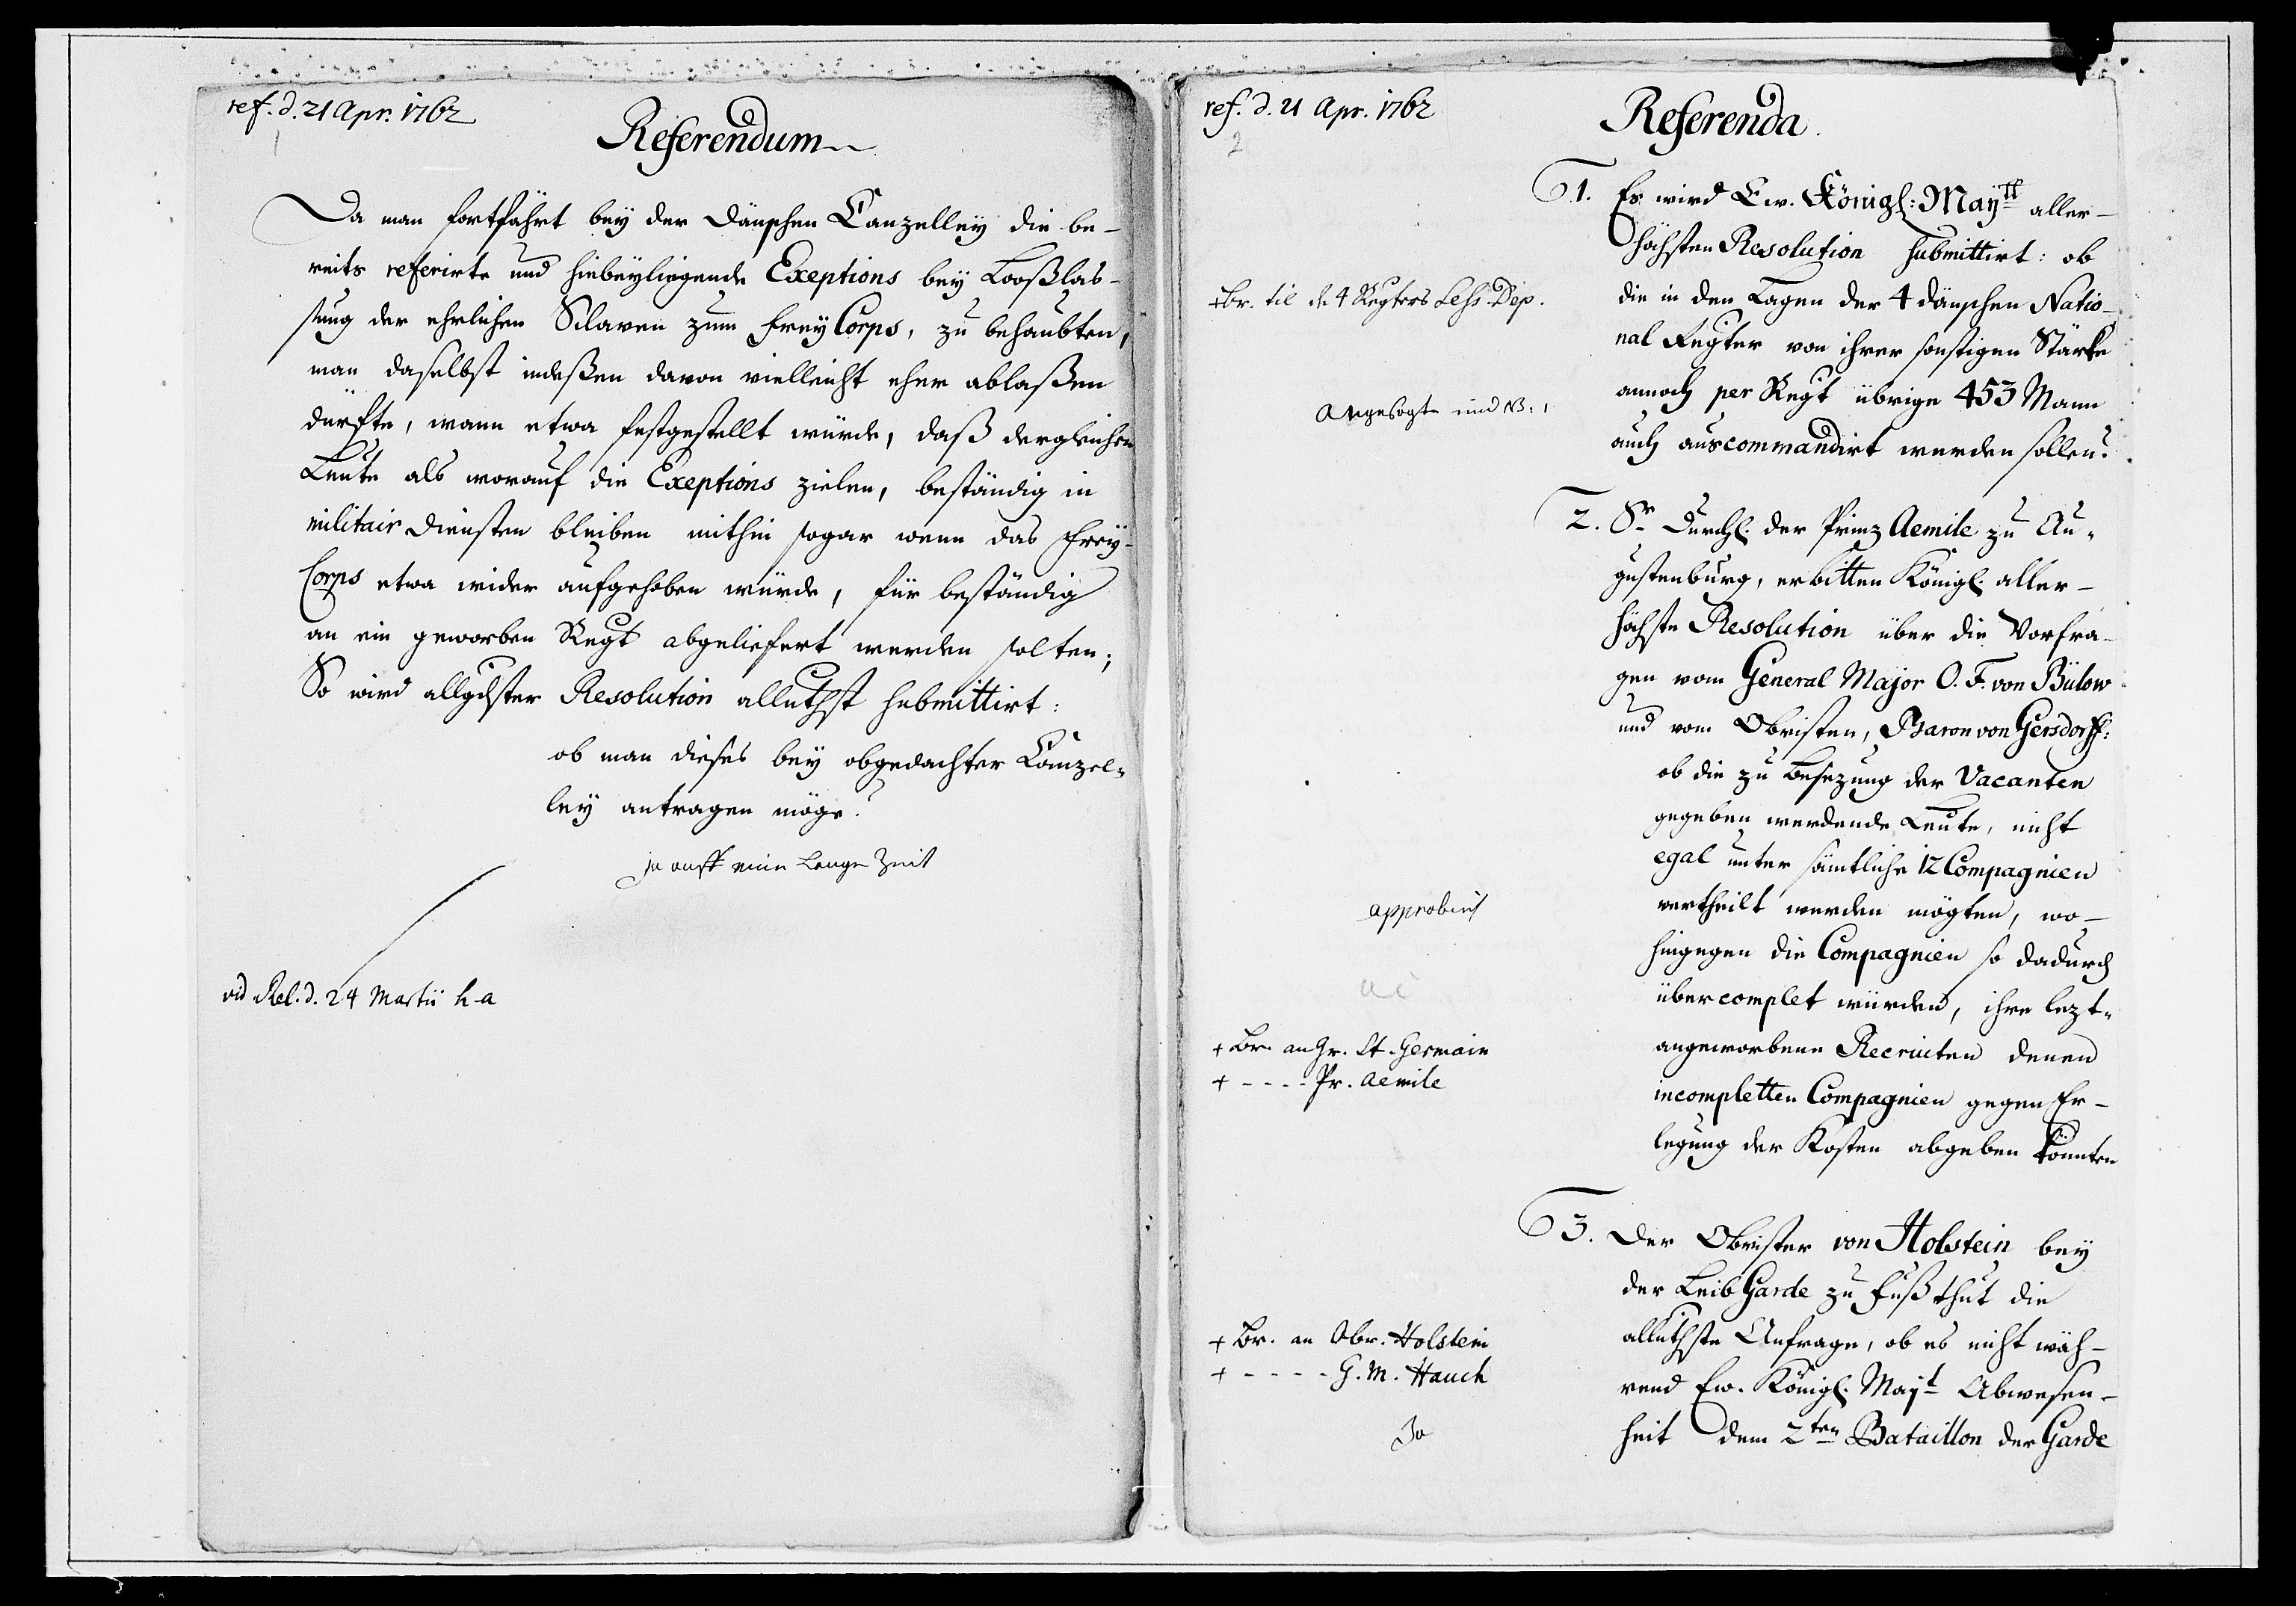 ref. d. 21 Apr. 1762
1
Referendum
Da man fortfährt bey der Dänschen Canzelley die be-
reits referirte und hiebeyliegende Exeptions bey Looßlas-
sung der ehrlichen Sclaven zum Frey Corps, zu behaubten,
man daselbst indeßen davon vielleicht eher ablaßen
dürfte, wann etwa festgestellt würde, daß dergleichen
Leute als worauf die Exeptions zielen, beständig in
militair Diensten bleiben mithin sogar wenn das Frey-
Corps etwa wider aufgehoben würde, für beständig
an ein geworben Regt abgeliefert werden solten;
So wird allgdster Resolution alluthst submittirt:
ob man dieses bey obgedachter Canzel-
ley antragen möge?
ja auff eine Lange Zeit
vid Rel. d. 24 Martii h. a
ref. d. 21 Apr. 1762
2
Referenda.
1. Es wird Ew. Königl: Maytt aller-
höchsten Resolution submittirt: ob
die in den Lagen der 4 dänschen Natio-
nal Regter von ihrer sonstigen Stärke
annoch per Regt übrige 453 Mann
auch auscommandirt werden sollen?
+Br. til de 4 Regters Chefs. Dep.
2. Sr Durchl. der Prinz Aemile zu Au-
gustenburg, erbitten Königl. aller-
höchste Resolution über die Vorfra-
gen vom General Major O. F. von Bülow
und vom Obristen, Baron von Gersdorff:
ob die zu Besezung der Vacanten
gegeben werdende Leute, nicht
egal unter sämtliche 12 Compagnien
vertheilt werden mögten, wo-
hingegen die Compagnien so dadurch
übercomplet würden, ihre lezt-
angeworbene Recruten denen
incompletten Compagnien gegen Er-
legung der Kosten abgeben könnten
approbirt
+ Br. an Gr. St. Germain
+ - - - - Pr. Aemile
3. Der Obrister von Holstein bey
der Leib Garde zu Fuß thut die
alluthste Anfrage, ob es nicht wäh-
rend Ew. Königl. Mayt Abwesen-
heit dem 2ten Bataillon der Garde
+ Br. an Obr. Holstein
+ - - - - - G. M. Hauch
Ja